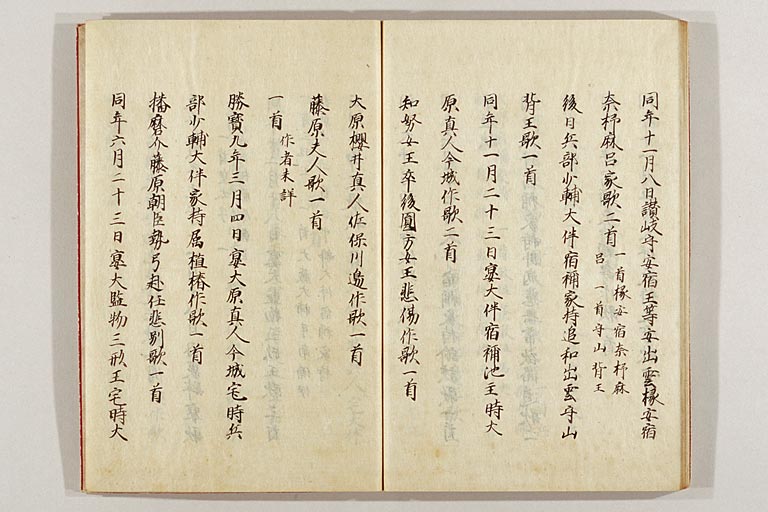 同年十一月八日讃岐守安宿王等安出雲掾安宿
奈杼麻呂家歌二首 一首掾安宿奈杼麻
呂 一首守山背王
後日兵部少輔大伴宿祢家持追和出雲守山
背王歌一首
同年十一月二十三日宴大伴宿祢池主時大
原真人今城作歌二首
知努女王卒後圓方女王悲傷作歌一首
大原櫻井真人佐保川邊作歌一首
藤原夫人歌一首
一首 作者未詳
勝寳九年三月四日宴大原真人今城宅時兵
部少輔大伴家持属植椿作歌一首
播磨介藤原朝臣執弓赴任悲別歌一首
同年六月二十三日宴大監物三形王宅時大